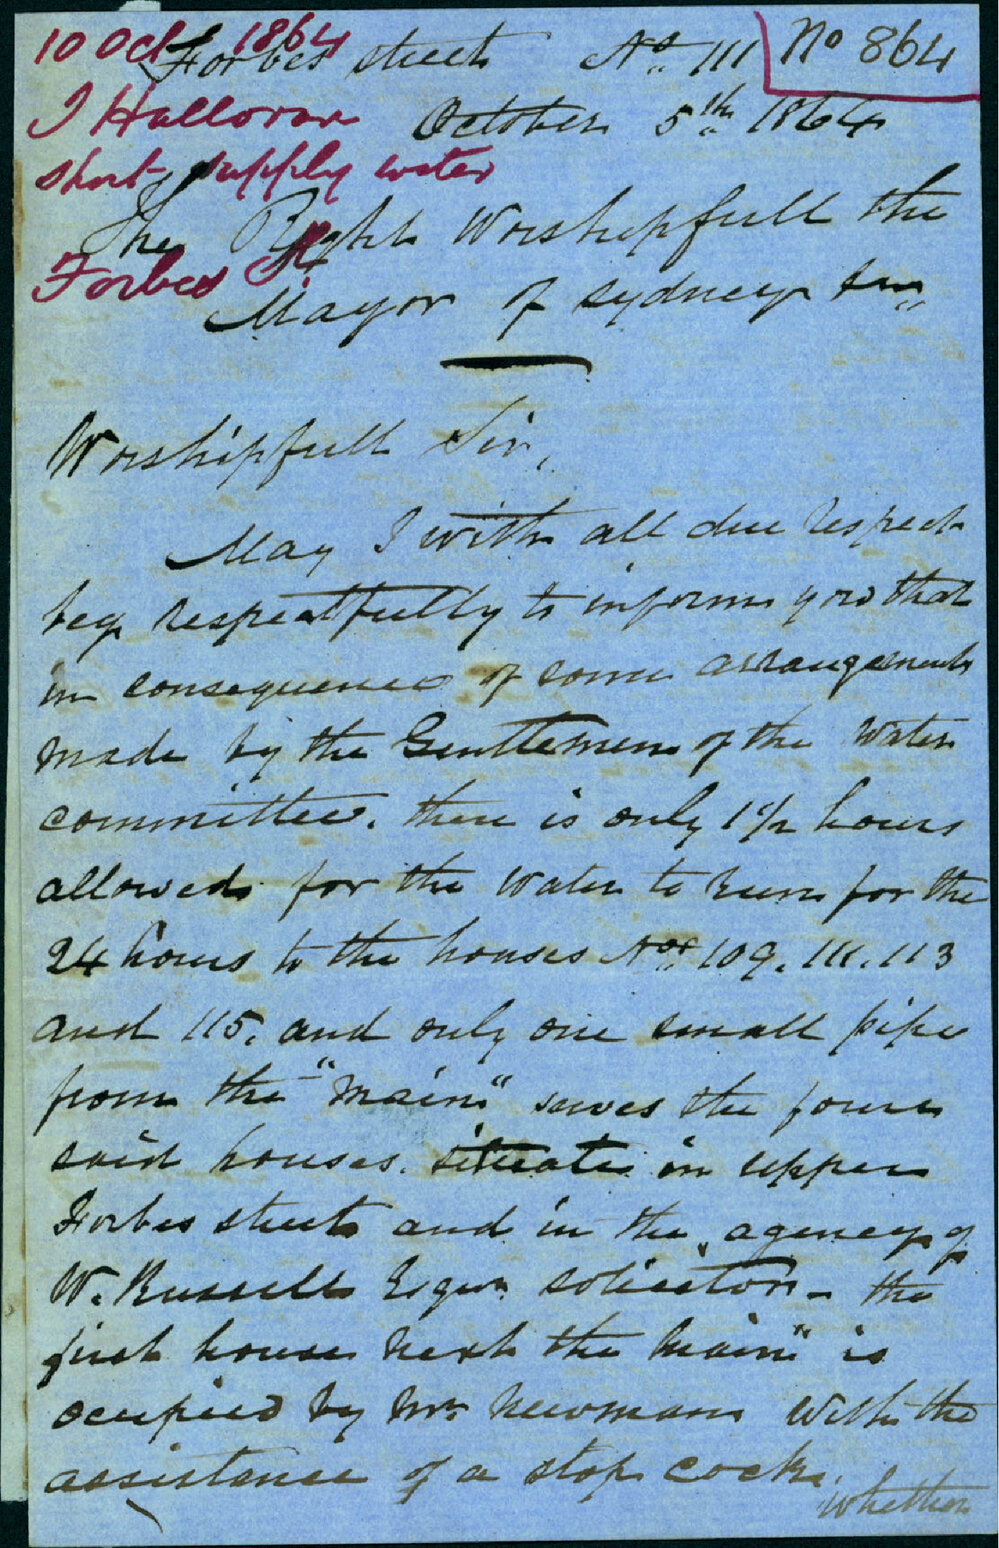 10 Oct 1864
No 864
Forbes street No 111
J Halloran
October 5th 1864
short supply water
The Right Worshipfull the
Forbes St
Mayor of Sydney
Worshipfull Sir,
May I with all due respect
beg respectfully to inform you that
in consequence of some arrangements
made by the Gentlemen of the Water
committee. there is only 1 1/2 hours
allowed for the Water to run for the
24 hours to the houses Nos 109. 111. 113
and 115. and only one small pipe
from the "main" serves the four
said houses. situate in upper
Forbes street and in the agency of
W. Russell Esqr. solicitor - the
first house next the "main" is
occupied by Mr Newman with the
assistance of a stop cock.
whether